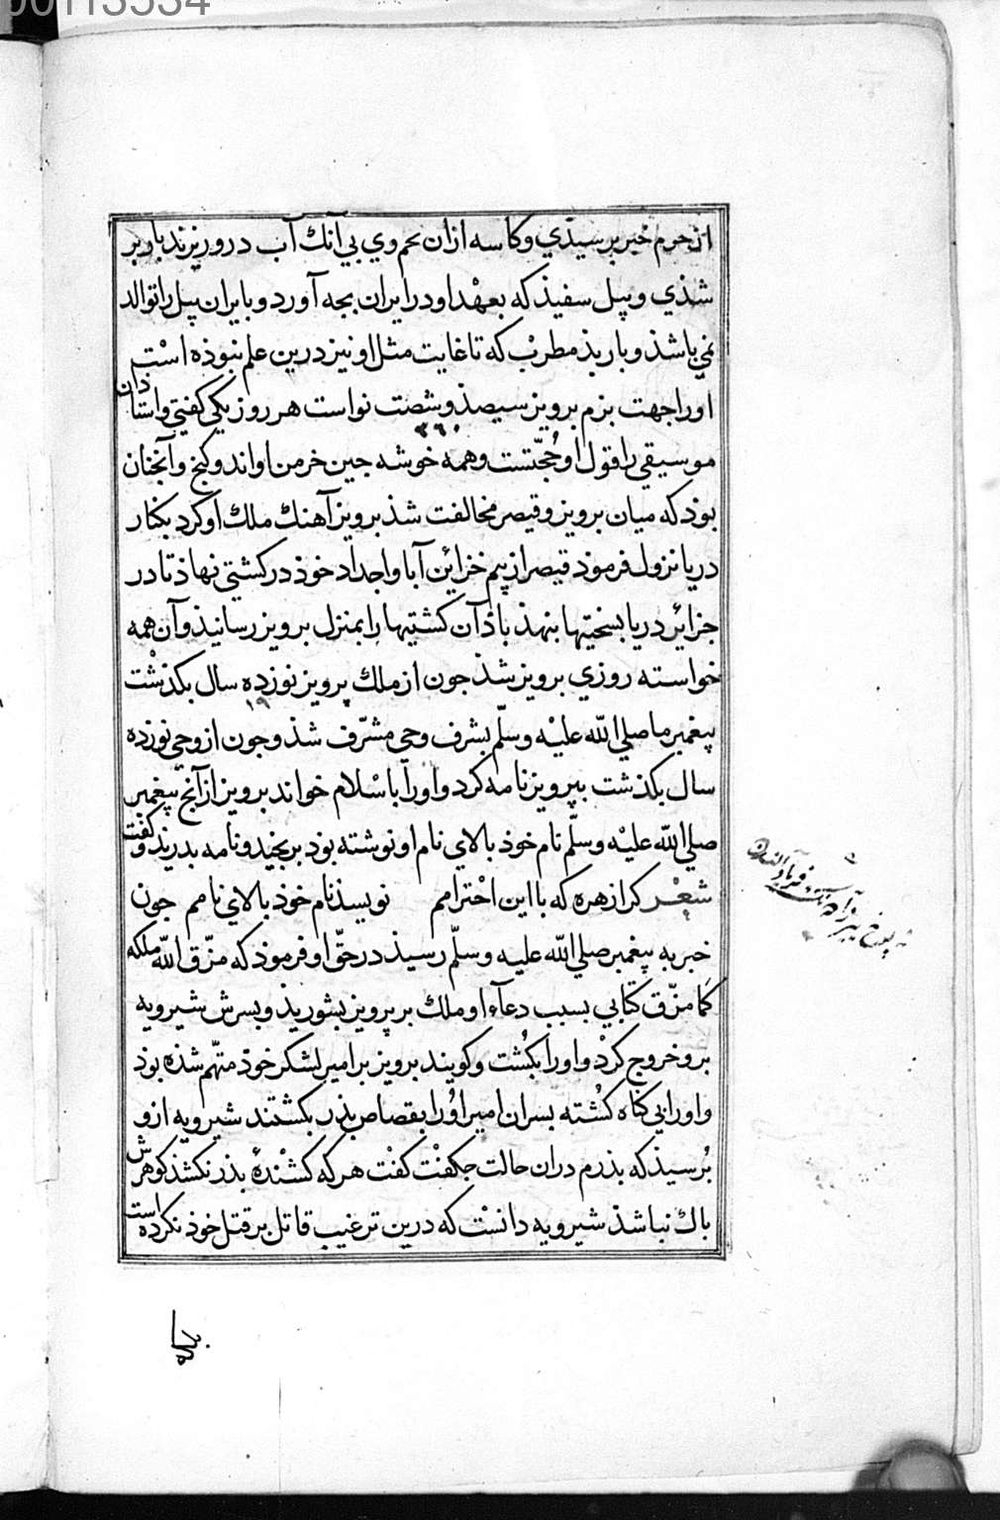 00113534
از حرم خبر برسیذی وکاسه ازان بحم وی بی آنك آب درو ریزند باز بر
شذی و پیل سفیذ که بعهْد او در ایران بجه آورد و بایران پیل را توالد
نمی باشذ و باربذ مطربْ که تا غایت مثل او نیز درین علم نبوذه اسْت
او را جهت بزم برویز سیصذ و شصت نواست هر روز یکی کفتی و استادان
۳۶۰
موسیقی را قول او حُجّتست و همه خوشه جین خرمن او اند و کنج واذآنجنان
بوذ که میان برویز و قیصر مخالفت شذ برویز آهنك ملك او کرد بکنار
دریا نزول فرموذ قیصر از بیم خزائن آبا و اجداد خوذ در کشتی نهاذ تا در
جزائر دریا بسختیها بنهذ باذ آن کشتیها را بمنزل برویز رسانیذ و آن همه
خواسته روزی برویز شذ جون از ملك پرویز نوزده سال بکذشْت
۱۹
پیغمبر ما صلی اللّه علیْه وسلّم بشرف وحی مشرّف شذ و جون از وحی نوزده
سال بکذشت بپرویز نامه کرد و او را باسْلام خواند برویز از آنج پیغمبر
صلی اللّه علیْه وسلّم نام خوذ بالای نام او نوشته بوذ برنجیذ و نامه بدرید و کفت
شعْر کرا زهره که با این احْترامم نویسذ نام خوذ بالای نامم جون
خبر به پیغمبر صلی اللّه علیه وسلّم رسیذ در حقّ او فرموذ که مزّق اللّه ملکه
کَما مزّق کتابی بسبب دعآء او ملك بر پرویز بشوریذ و بسرش شیرویه
برو خروج کردْ و او را بکُشت و کویند برویز بر امیر لشکر خوذ متهّم شذه بوذ
و او را بی کناه کُشته بسران امیر اوُ را بقصاص بذر بکشتند شیرویه ازو
بُرسیذ که بذرم دران حالت جکفتْ کفت هر که کشْندهٔ بذر نکشذ کوهرش
باك نباشذ شیرویه دانسْت که درین ترغیب قاتل بر قتل خوذ نکرده است